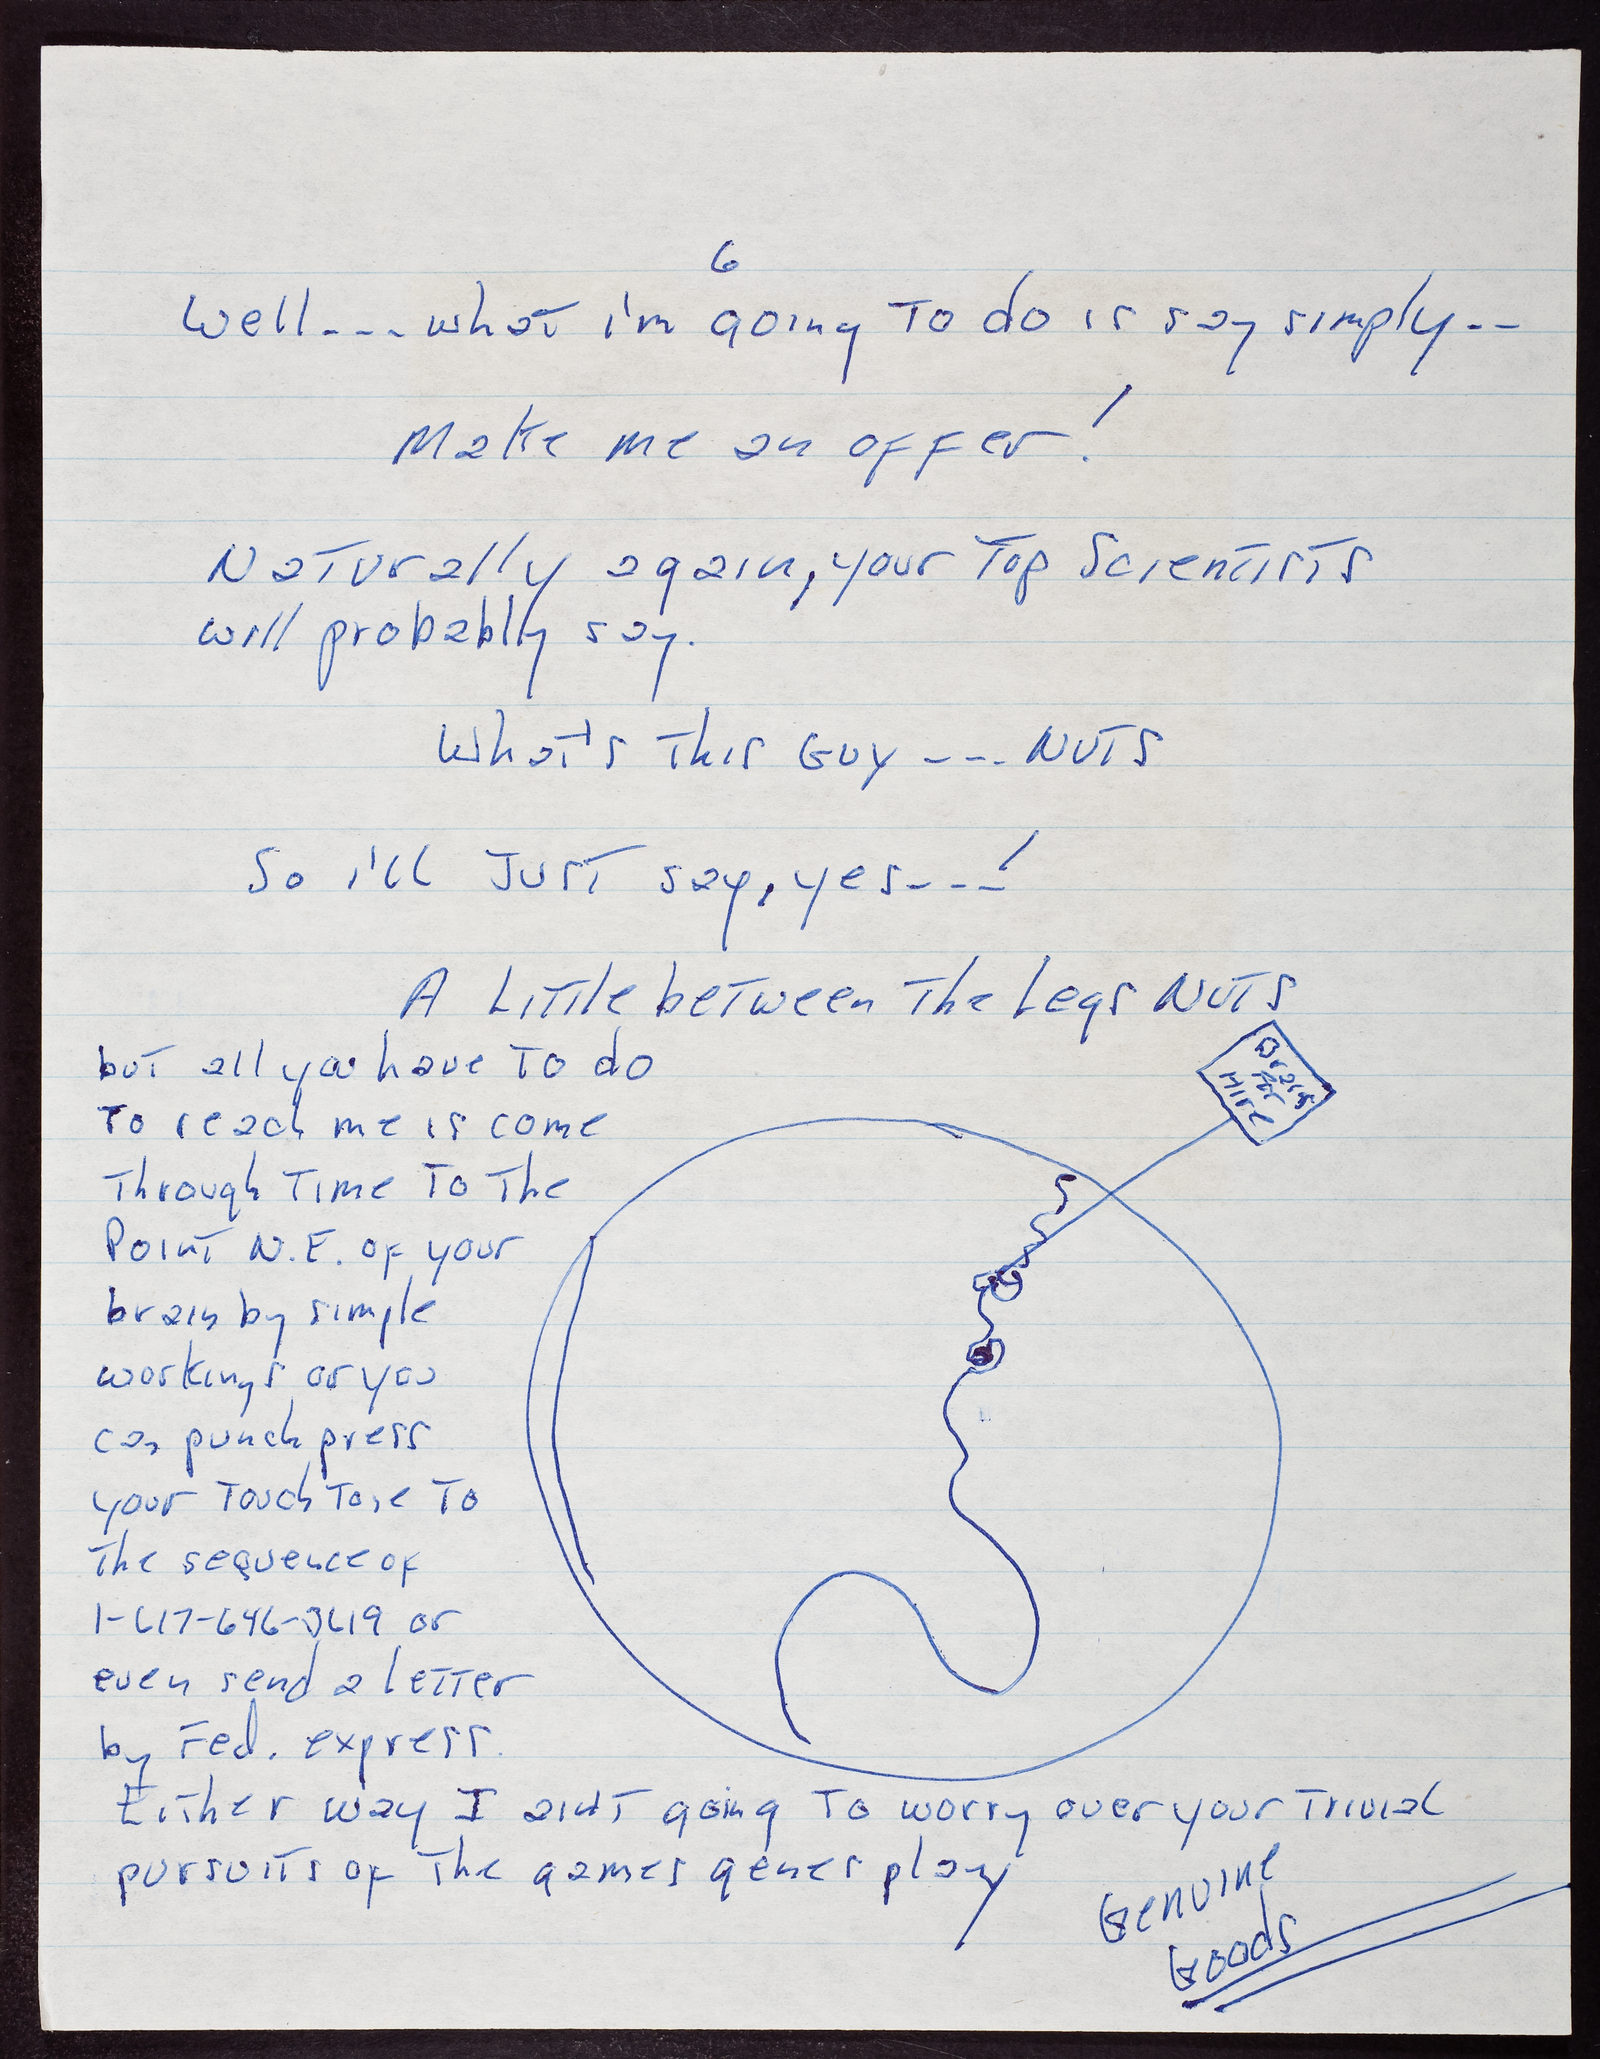 6
Well---what i'm going To do is say simply--
Make me an offer!
Naturally again, your Top Scientists
will probably say.
What's This Guy---NUTS
So i'll Just say, yes---!
A Little between The Legs NUTS
but all you have To do
To reach me is come
Through Time To The
Point N.E. of your
brain by simple
workings or you
can punch press
your Touch Tone To
The sequence of
1-617-646-3619 or
even send a letter
by Fed. express.
Brain
For
Hire
Either way I aint going To worry over your Trivial
pursuits of The games genes play
Genuine
Goods